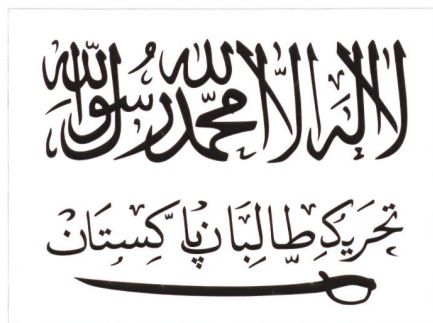 لا إله إلا الله محمد رسول الله
تحریکِ طالبان پاکستان